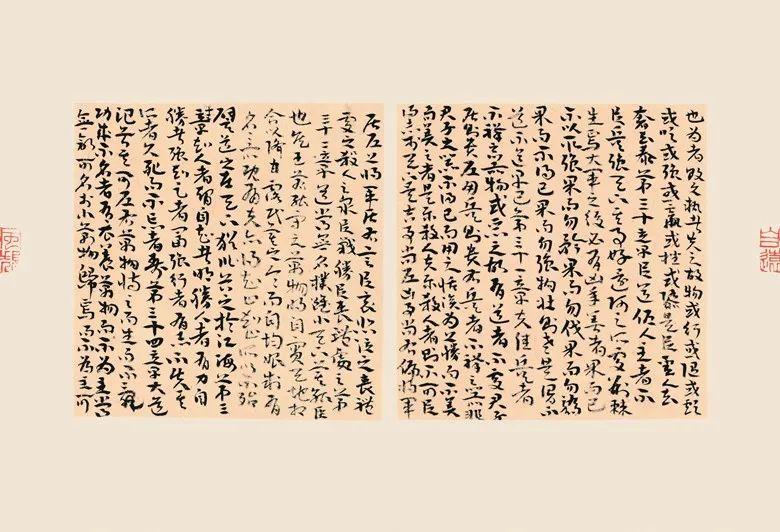 也為者敗之執者失之故物或行或隨或歔
或吹或強或羸或挫或隳是以聖人去甚
去奢去泰第三十章以道佐人主者不
以兵強天下其事好還師之所處荊棘
生焉大軍之後必有凶年善者果而已
不以取強果而勿矜果而勿伐果而勿驕
果而不得已果而勿強物壯則老是謂不
道不道早已第三十一章夫佳兵者
不祥之器物或惡之故有道者不處君子
居則貴左用兵則貴右兵者不祥之器非
君子之器不得已而用之恬淡為上勝而不美
而美之者是樂殺人夫樂殺人者則不可以
得志於天下矣吉事尚左凶事尚右偏將軍
居左上將軍居右言以哀悲泣之喪禮
處之殺人之眾以戰勝以喪禮處之第
三十二章道常無名樸雖小天下莫能臣
也侯王若能守之萬物將自賓天地相
合以降甘露民莫之令而自均始制有
名名亦既有夫亦將知止知止所以不殆
譬道之在天下猶川谷之於江海第三
十三章知人者智自知者明勝人者有力自
勝者強知足者富強行者有志不失其
所者久死而不亡者壽第三十四章大道
氾兮其可左右萬物恃之而生而不辭
功成不名有衣養萬物而不為主常
無欲可名於小萬物歸焉而不為主可